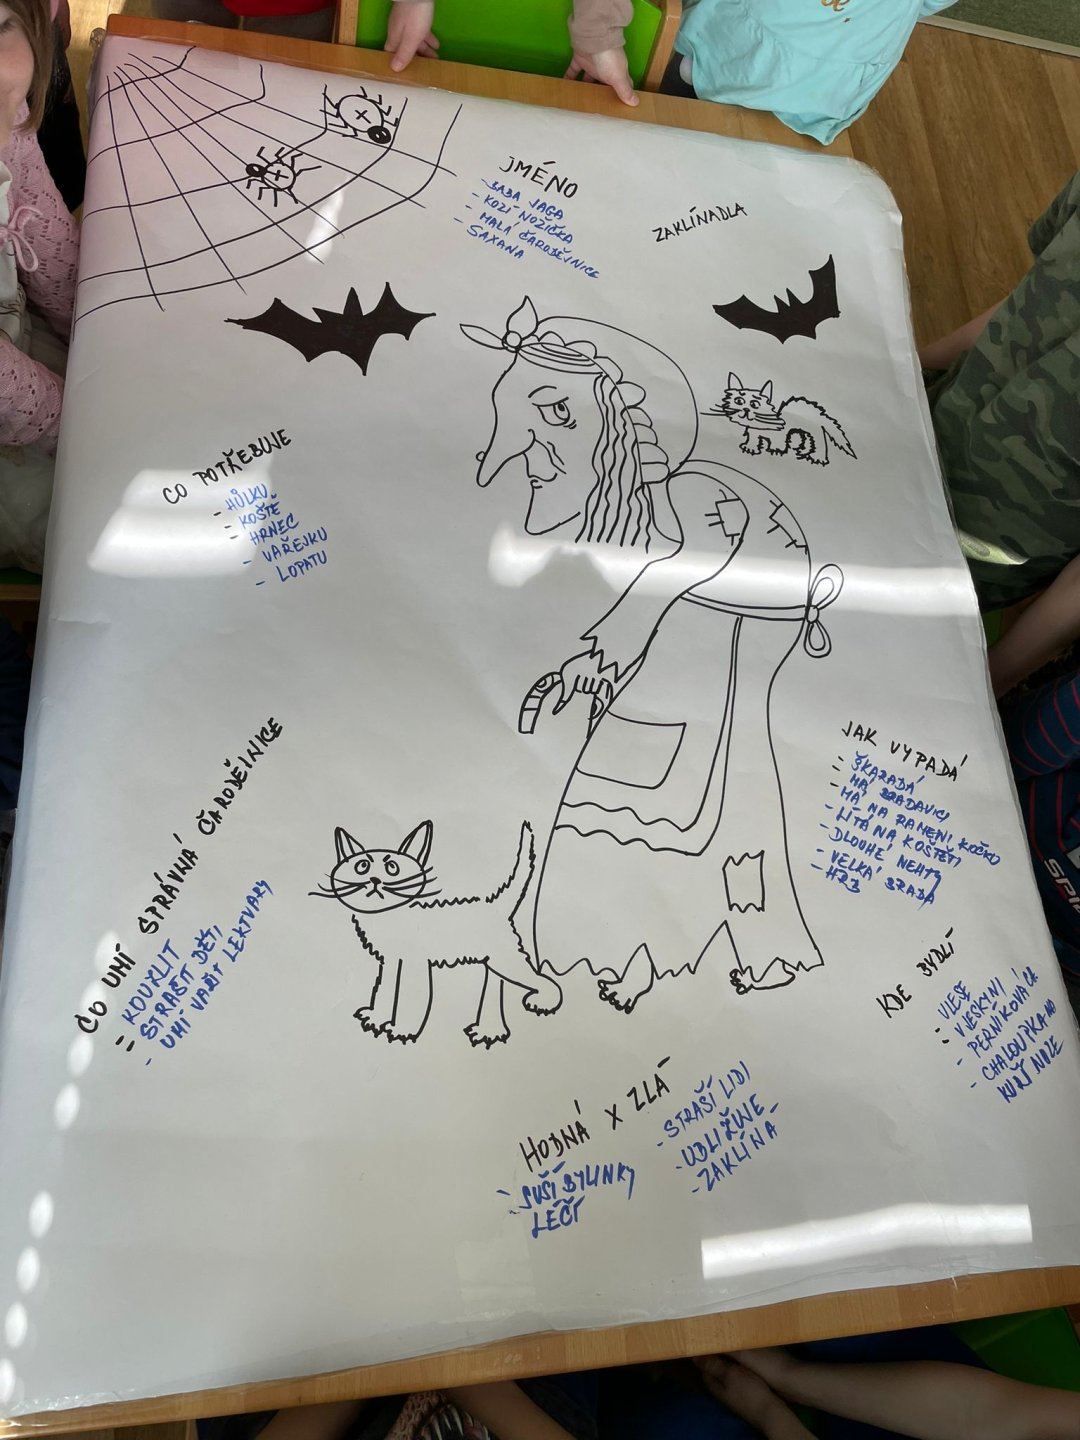 JMÉNO
- BABA JAGA
- KOZÍ NOŽIČKA
- MALÁ ČARODĚJNICE
- SAXANA
ZAKLÍNADLA
CO POTŘEBUJE
- HŮLKU
- KOŠTĚ
- HRNEC
- VAŘEJKU
- LOPATU
CO UMÍ SPRÁVNÁ ČARODĚJNICE
- KOUZLIT
- STRAŠIT DĚTI
- UMÍ VAŘIT LEKTVARY
JAK VYPADÁ
- ŠKARADÁ
- MÁ BRADAVICI
- MÁ NA RAMENI KOČKU
- LÍTÁ NA KOŠTĚTI
- DLOUHÉ NEHTY
- VELKÁ BRADA
- HRB
KDE BYDLÍ
- V LESE
- V JESKYNI
- PERNÍKOVÁ CH.
- CHALOUPKA NA
KUŘÍ NOZE
HODNÁ X ZLÁ
- SUŠÍ BYLINKY
- LÉČÍ
- STRAŠÍ LIDI
- UBLIŽUJE
- ZAKLÍNÁ